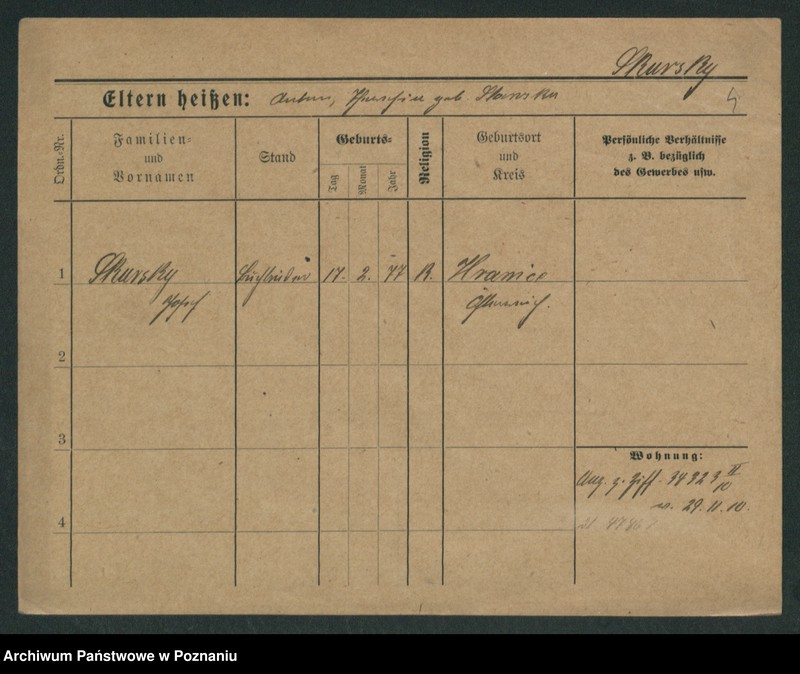 Skursky
Eltern heißen: Anton, geb.
Ordn.-Nr.
Familien- und Vornamen
Stand
Geburts-
Tag
Monat
Jahr
Religion
Geburtsort und Kreis
Persönliche Verhältnisse
z. B. bezüglich
des Gewerbes usw.
1 Skursky Buchbinder 17. 2. 77 R. Hranice
Josef Österreich.
2
3
Wohnung:
Ang. z. Ziff. 34323 IV/10
w. 29. 11. 10.
4
Archiwum Państwowe w Poznaniu